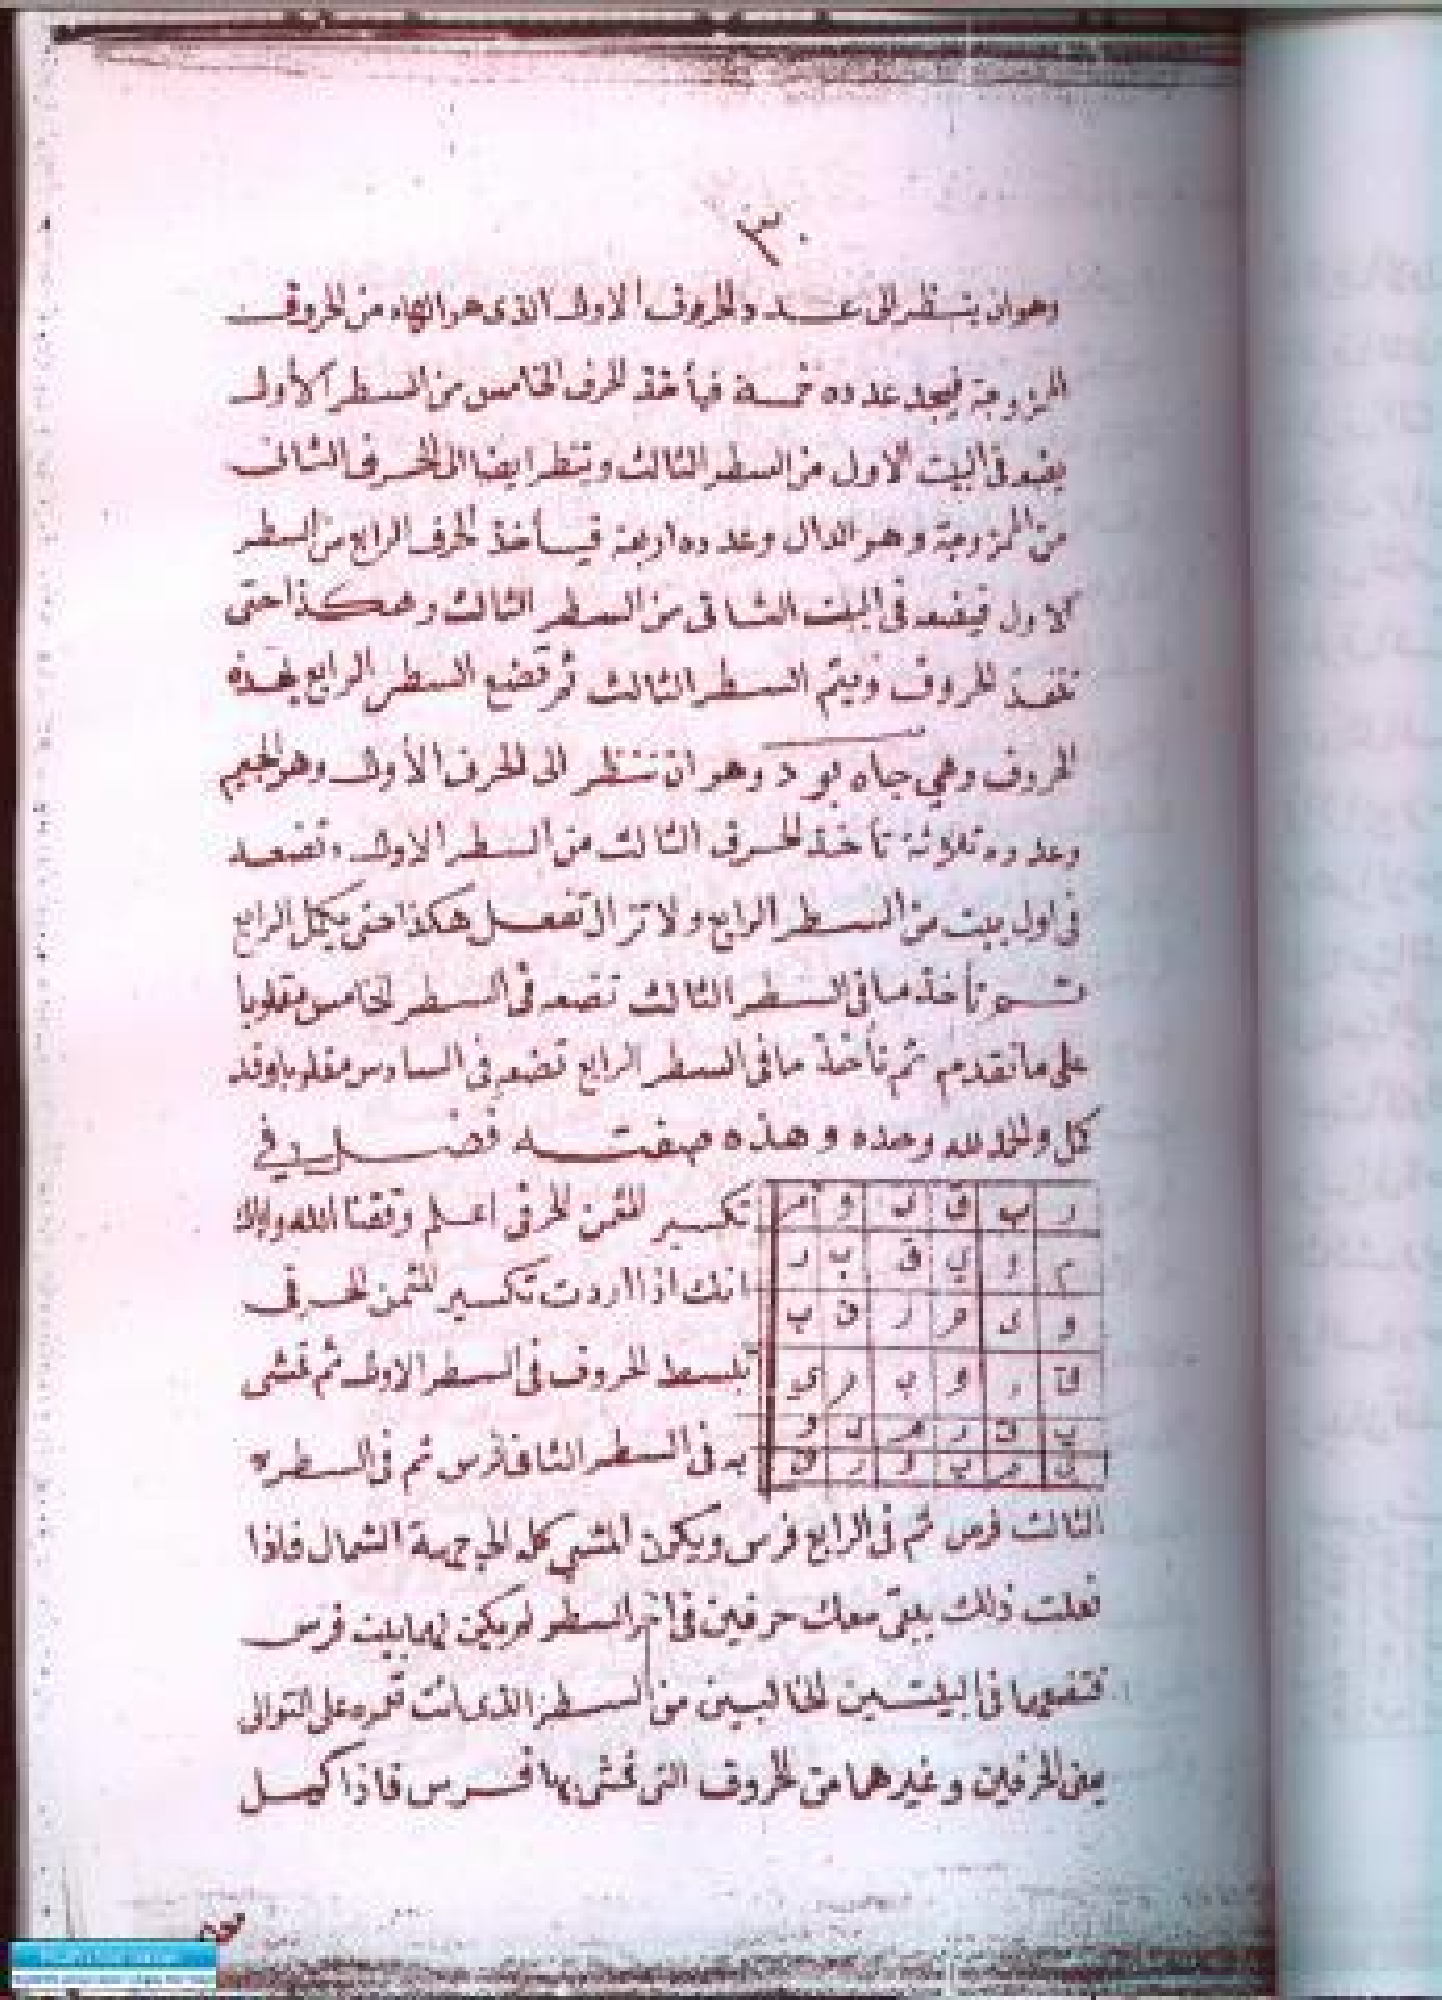 ٣٠
وهو ان ينظر الى عدد الحروف الاول الذى هو الهاء من الحروف
المزوجة فيجد عدده خمسة فيأخذ الحرف الخامس من السطر الأول
يضعه فى البيت الاول من السطر الثالث وينظر ايضا الى الحرف الثانى
من المزوجة وهو الدال وعدده اربعة فيأخذ الحرف الرابع من السطر
الاول فيضعه فى البيت الثانى من السطر الثالث وهكذا حتى
تنفذ الحروف ويتم السطر الثالث ثم تضع السطر الرابع بهذه
الحروف وهي جاه بود وهو ان تنظر الى الحرف الأول وهو الجيم
وعدده ثلاثة تأخذ الحرف الثالث من السطر الاول وتضعه
فى اول بيت من السطر الرابع ولا تزال تفعل هكذا حتى يكمل الرابع
ثم تأخذ ما فى السطر الثالث تضعه فى السطر الخامس مقلوبا
على ما تقدم ثم تأخذ ما فى السطر الرابع تضعه فى السادس مقلوبا وقد
كمل والحمد لله وحده وهذه صفته فصل في
تكسير المثمن الحرفى اعلم وفقنا الله واياك
انك اذا اردت تكسير المثمن الحرفى
تبسط الحروف فى السطر الاول ثم تمشى
به فى السطر الثانى فرس ثم فى السطر
الثالث فرس ثم فى الرابع فرس ويكون المشي كله الى جهة الشمال فاذا
فعلت ذلك يبقى معك حرفين فى اخر السطر لم يكن لهما بيت فرس
فتضعهما فى البيتين الخاليين من السطر الذى انت تعمره على التوالى
يعنى الحرفين وغيرهما من الحروف التى تمشى بها فرس فاذا كمل
ر ب ق ى و م
م و ى ق ب ر
و ى م ر ق ب
ق ر و ب م ى
ب ق ر م ى و
ى م ب و ر ق